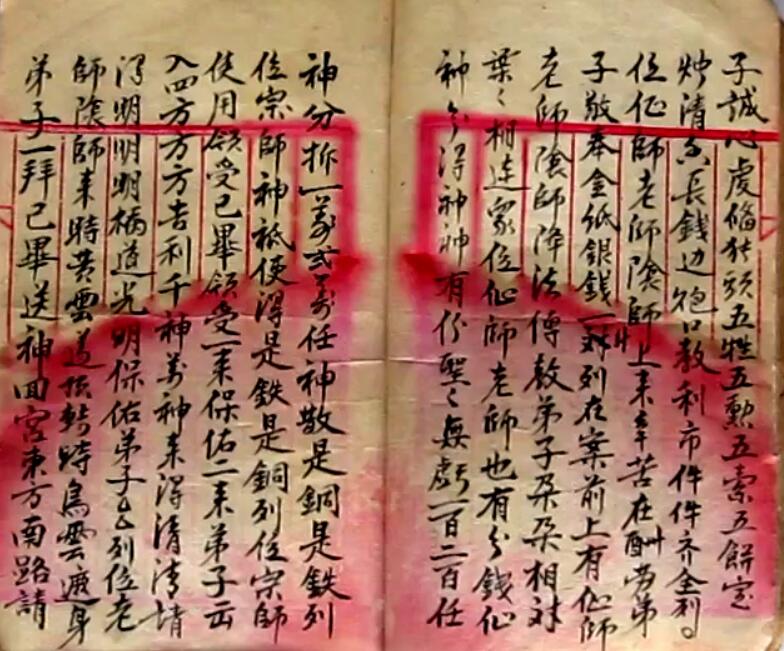 子誠心虔俻猪頭五牲五勲五索五餅定
炉清香長錢边炮口敎利市件件齐全列。
位仙師老師陰師上来辛苦在酬劳弟
子敬奉金紙銀錢一對列在案前上有仙師
老師陰師降法傳敎弟子朶朶相对
葉〻相連家位仙師老師也有分錢仙
神分得神神有份聖〻無虧一百二百任
神分拆一萬弍萬任神散是銅是鉄列
位宗師神祇使得是鉄是銅列位宗師
使用領受已畢領受一来保佑二来弟子云
入四方方方吉利千神萬神来得清清堵
得明明明柄道光明保佑弟子厶厶列位老
師陰師来時黄雲盖頂轉時烏雲遮身
弟子一拜已畢送神回宮東方南路請